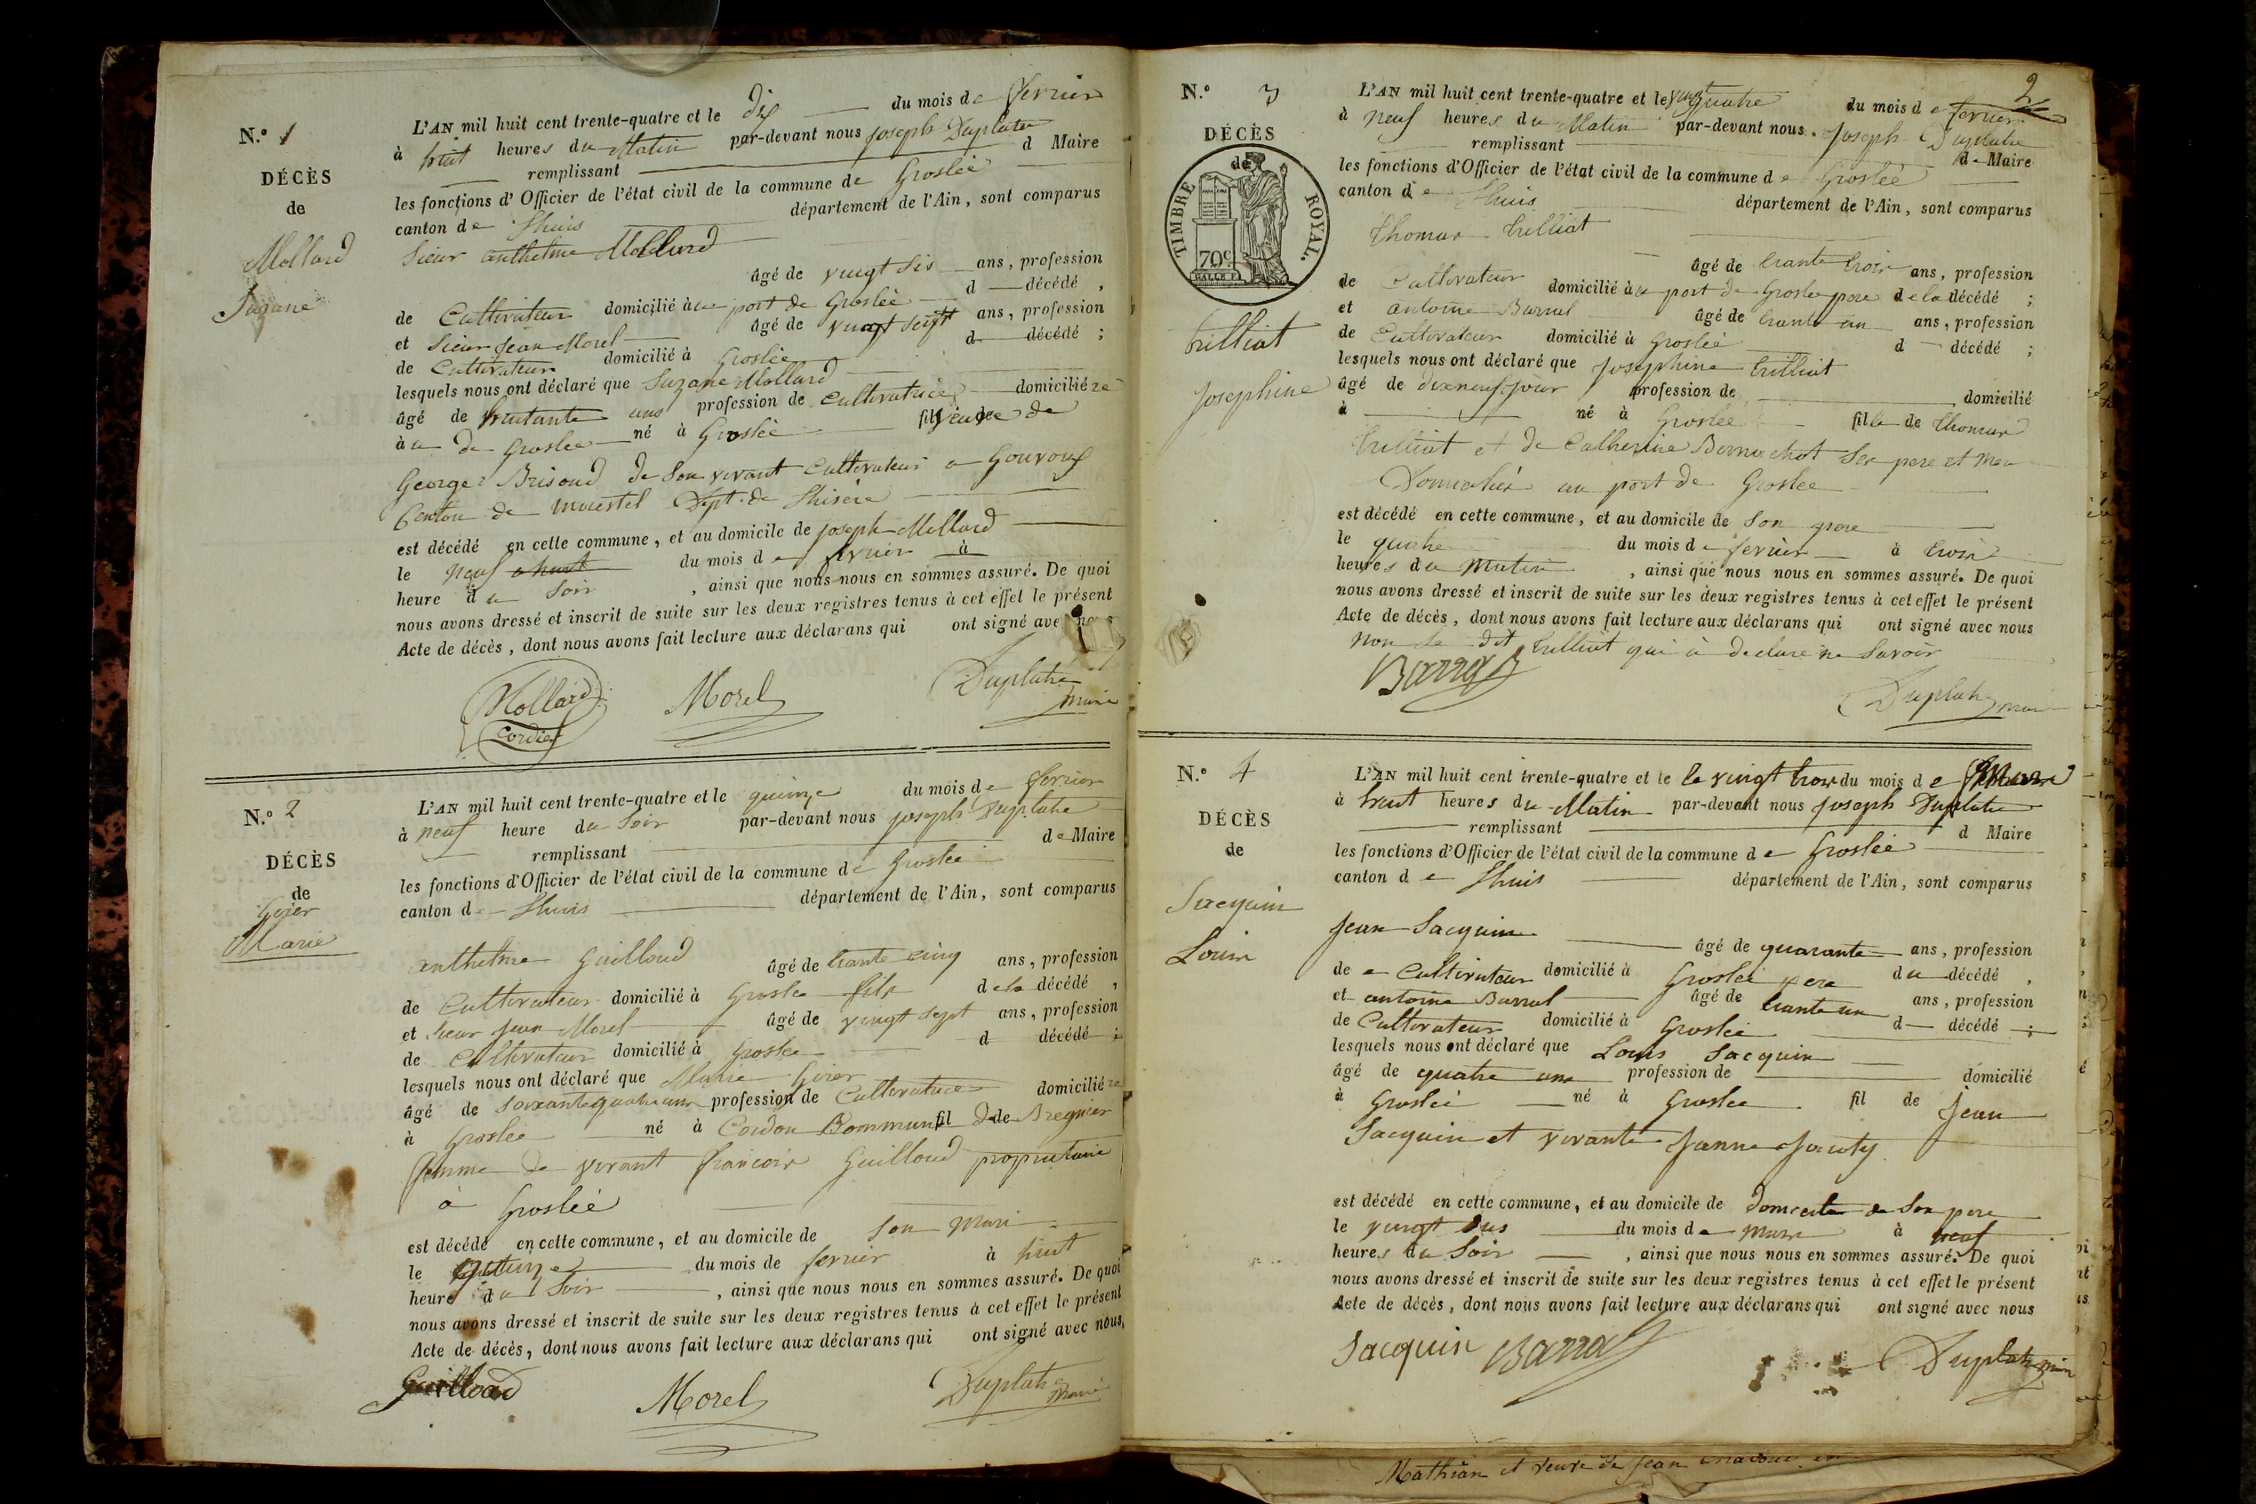 N.º 1
DÉCÈS
de
Mollard
Suzane
L'AN mil huit cent trente-quatre et le dix du mois de fevrier
à huit heures du Matin par-devant nous joseph Duplatre
remplissant d Maire
les fonctions d'Officier de l'état civil de la commune de Groslée
canton de Lhuis département de l'Ain, sont comparus
Sieur anthelme Mollard
âgé de vingt six ans, profession
de Cultivateur domicilié à au port de Groslée d décédé,
et Sieur Jean Morel âgé de vingt sept ans, profession
de Cultivateur domicilié à Groslée d décédé;
lesquels nous ont déclaré que Suzane Mollard
âgé de ans profession de Cultivatrice domicilié
à de Groslée né à Groslée fil veuve de
George Brisoud de Son vivant Cultivateur a
Canton de Dept. de
est décédé en cette commune, et au domicile de joseph Mollard
le neuf du mois de fevrier à
heure du Soir, ainsi que nous nous en sommes assuré. De quoi
nous avons dressé et inscrit de suite sur les deux registres tenus à cet effet le présent
Acte de décès, dont nous avons fait lecture aux déclarans qui ont signé avec nous
Mollard Morel Duplatre
Cordier maire
N.º 2
DÉCÈS
de
Goier
Marie
L'AN mil huit cent trente-quatre et le quinze du mois de fevrier
à neuf heure du Soir par-devant nous joseph Duplatre
remplissant de Maire
les fonctions d'Officier de l'état civil de la commune de Groslée
canton de Lhuis département de l'Ain, sont comparus
anthelme Guilloud
âgé de trante cinq ans, profession
de Cultivateur domicilié à Groslée fils de la décédé,
et Sieur Jean Morel âgé de vingt sept ans, profession
de Cultivateur domicilié à Groslée d décédé
lesquels nous ont déclaré que Marie Goier
âgé de Soixante quatre ans profession de Cultivatrice domicilié
à Groslée né à Cordon fil de Bregnier
femme de vivant francois Guilloud propriétaire
à Groslée
est décédé en cette commune, et au domicile de son mari
le quinze du mois de fevrier à huit
heure du Soir, ainsi que nous nous en sommes assuré. De quoi
nous avons dressé et inscrit de suite sur les deux registres tenus à cet effet le présent
Acte de décès, dont nous avons fait lecture aux déclarans qui ont signé avec nous,
Guilloud Morel Duplatre
maire
2
N.º 3
DÉCÈS
de
TIMBRE ROYAL.
70c.
trilliat
Josephine
L'AN mil huit cent trente-quatre et le vingt quatre du mois de fevrier
à neuf heures du Matin par-devant nous. Joseph Duplatre
remplissant de Maire
les fonctions d'Officier de l'état civil de la commune de Groslée
canton de Lhuis département de l'Ain, sont comparus
thomas trilliat
âgé de trante trois ans, profession
de Cultivateur domicilié à au port de Groslée pere de la décédé;
et antoine Barral âgé de trante un ans, profession
de Cultivateur domicilié à Groslée d décédé;
lesquels nous ont déclaré que Josephine trilliat
âgé de dixneuf jour profession de domicilié
à né à Groslée fille de thomas
trilliat et de Catherine ses pere et
Domiciliés au port de Groslée
est décédé en cette commune, et au domicile de son pere
le quatre du mois de fevrier à trois
heures du Matin, ainsi que nous nous en sommes assuré. De quoi
nous avons dressé et inscrit de suite sur les deux registres tenus à cet effet le présent
Acte de décès, dont nous avons fait lecture aux déclarans qui ont signé avec nous
non le dit trilliat qui à declaré ne Savoir
Barral Duplatre
N.º 4
DÉCÈS
de
Sacquin
Louis
L'AN mil huit cent trente-quatre et le le vingt trois du mois de Mars
à huit heures du Matin par-devant nous Joseph Duplatre
remplissant d Maire
les fonctions d'Officier de l'état civil de la commune de Groslée
canton de Lhuis département de l'Ain, sont comparus
Jean Sacquin
âgé de quarante ans, profession
de Cultivateur domicilié à Groslée pere du décédé,
et antoine Barral âgé de trante un ans, profession
de Cultivateur domicilié à Groslée d décédé;
lesquels nous ont déclaré que Louis Sacquin
âgé de quatre ans profession de domicilié
à Groslée né à Groslée fil de Jean
Sacquin et vivante Janne
est décédé en cette commune, et au domicile de domicile de Son pere
le vingt du mois de mars à neuf
heures du Soir, ainsi que nous nous en sommes assuré. De quoi
nous avons dressé et inscrit de suite sur les deux registres tenus à cet effet le présent
Acte de décès, dont nous avons fait lecture aux déclarans qui ont signé avec nous
Sacquin Barral Duplatre
Mathian et veuve de Jean